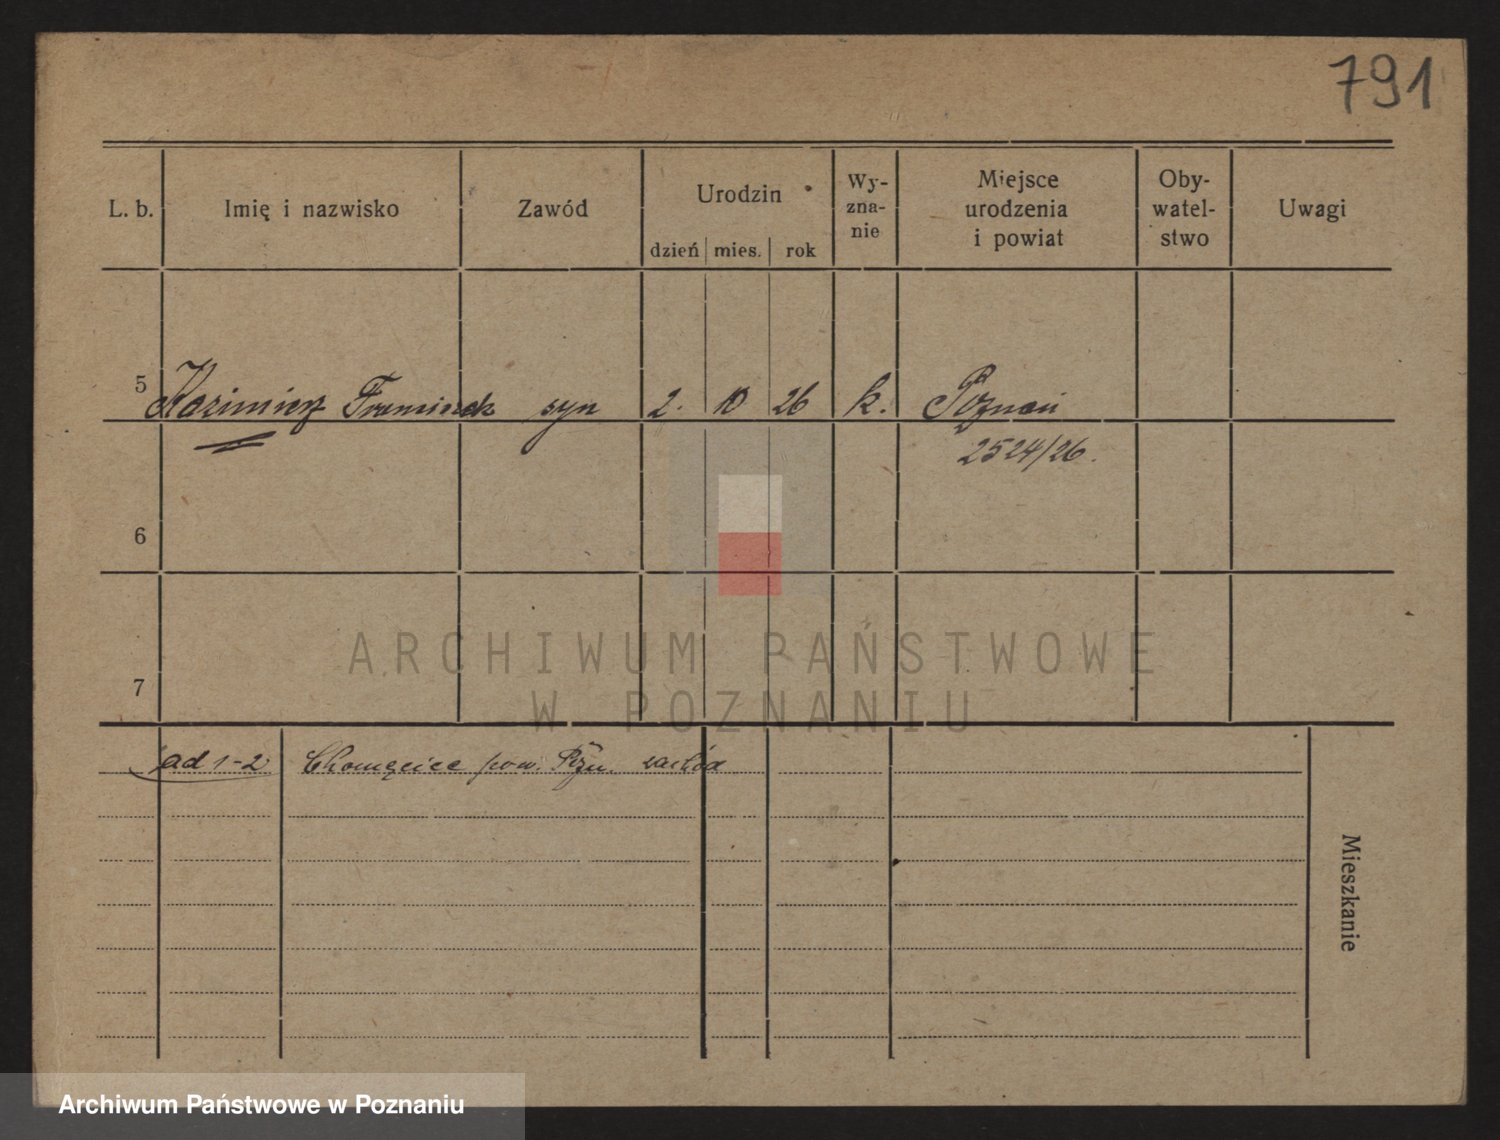 791
L. b. Imię i nazwisko Zawód Urodzin Wy-zna-nie Miejsce urodzenia i powiat Oby-watel-stwo Uwagi
dzień mies. rok
5 Kazimierz Franciszek syn 2. 10 26 k. Poznań
2524/26.
6
ARCHIWUM PAŃSTWOWE
7
W POZNANIU
ad 1-2 Chomęcice pow. Pozn. zachód
Mieszkanie
Archiwum Państwowe w Poznaniu